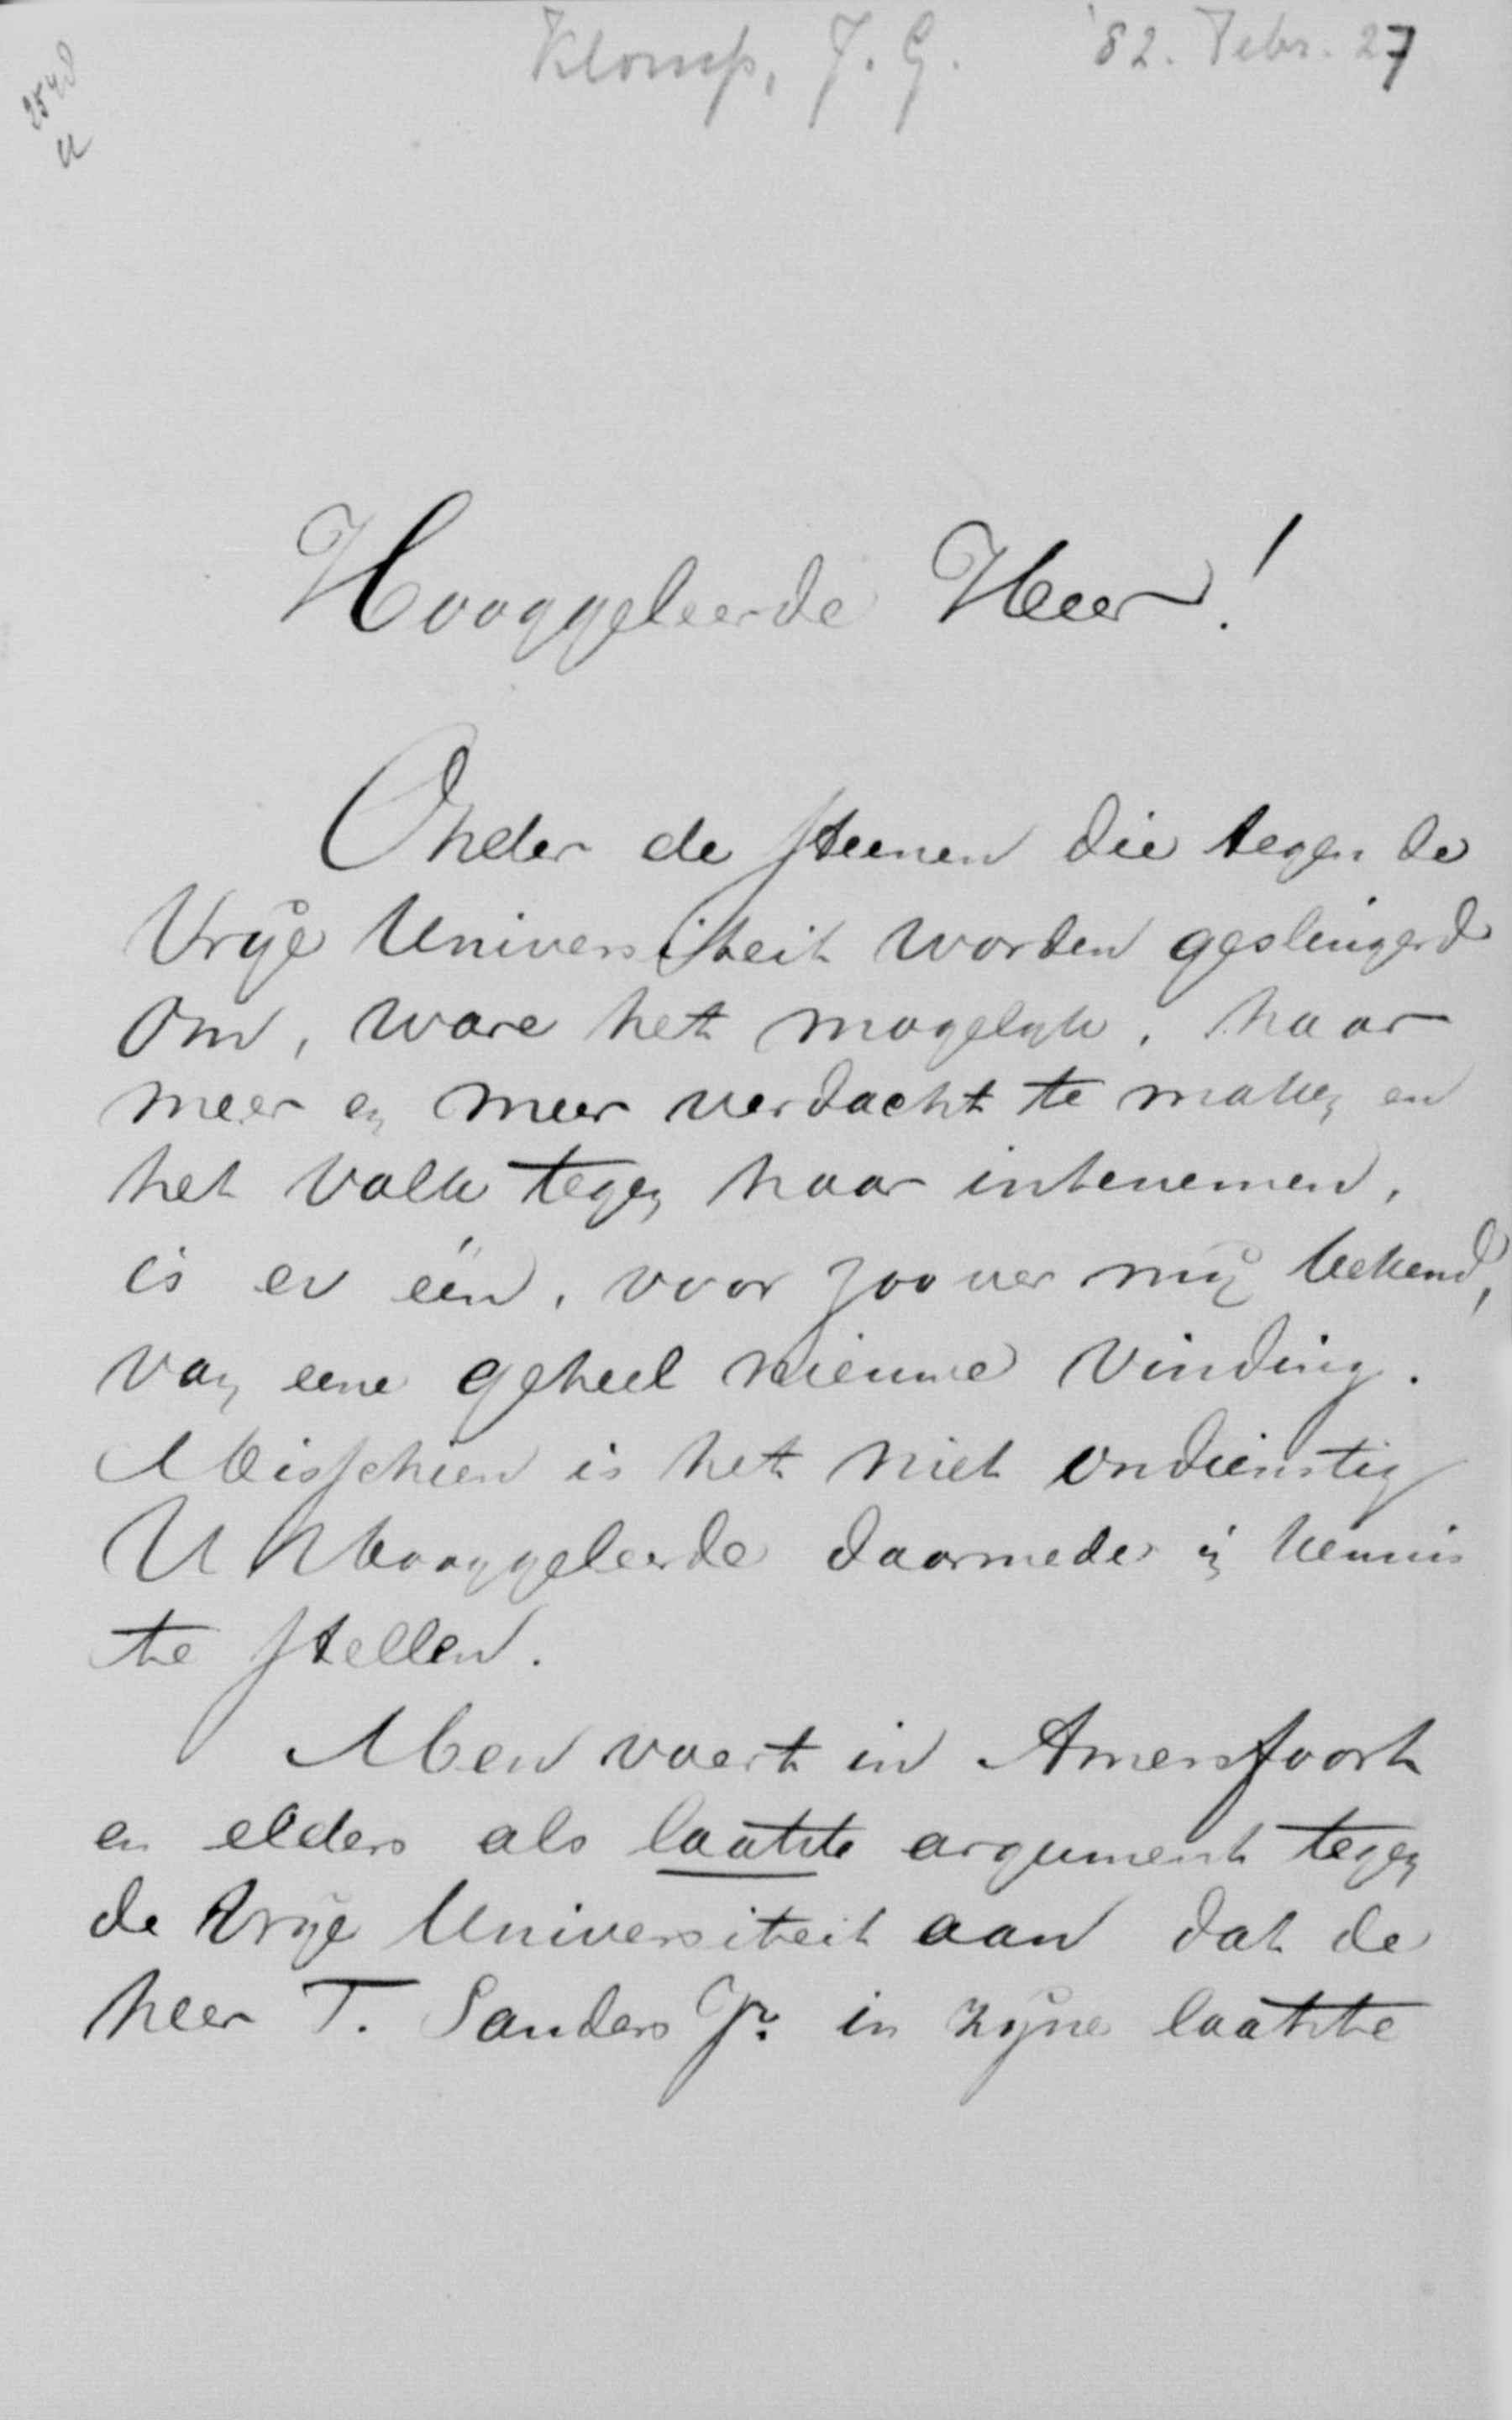 Klomp, J. G. '82. Febr. 27
2540
Hooggeleerde Heer!
Onder de steenen die tegen de
Vrije Universiteit worden geslingerd
om, ware het mogelijk, haar
meer en meer verdacht te maken en
het volk tegen haar intenemen,
is er één, voor zoover mij bekend,
van eene geheel nieuwe vinding.
Misschien is het niet ondienstig
U Hooggeleerde daarmede in kennis
te stellen.
Men voert in Amersfoort
en elders als laatste argument tegen
de Vrije Universiteit aan dat de
heer T. Sanders Jr. in zijne laatste